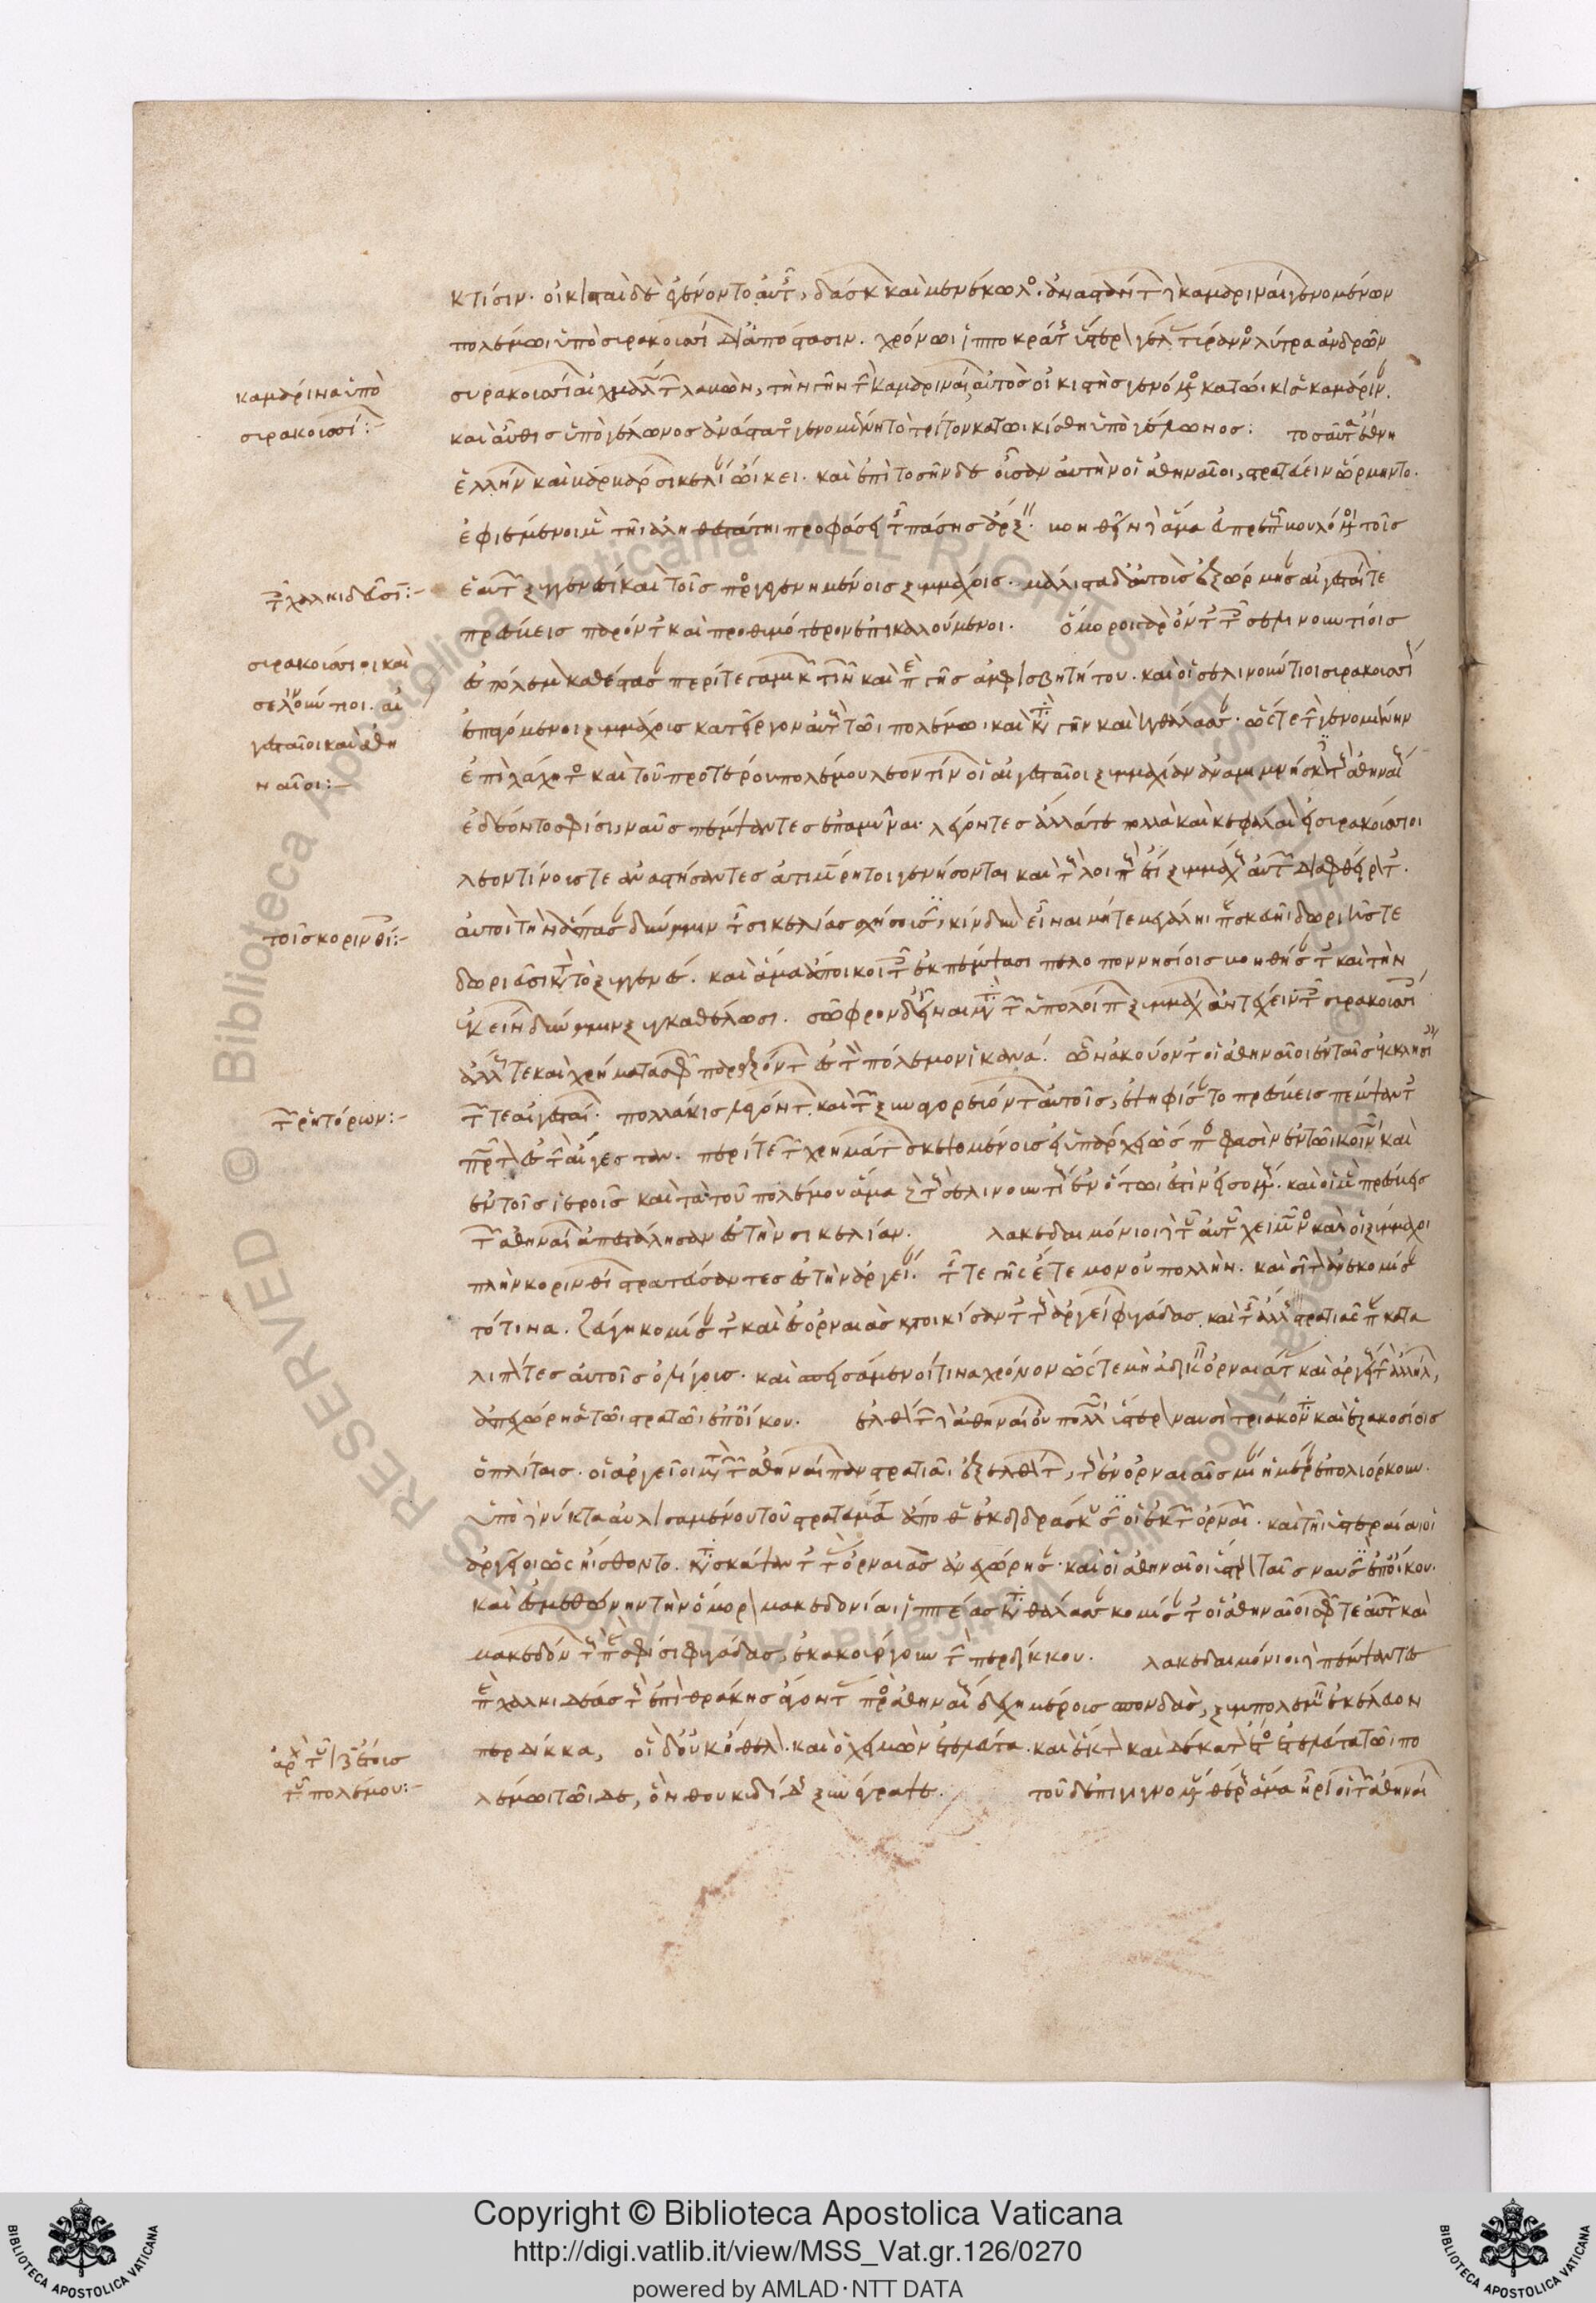 κτίσιν. οἰκισταὶ δὲ ἐγένοντο αὐτῆς, δάσκων καὶ μενέκωλος. ἀναστάτων δὲ καμαριναίων γενομένων
πολέμωι ὑπὸ συρακοσίων δι' ἀπόστασιν. χρόνωι ἱπποκράτης ὕστερον γέλας τύραννος λύτρα ἀνδρῶν
συρακοσίων αἰχμαλώτων λαβὼν, τὴν γῆν τὴν καμαριναίων, αὐτὸς οἰκιστὴς γενόμενος κατώικισε καμάριναν.
καμάρινα ὑπὸ
συρακοσίων:-
καὶ αὖθις ὑπὸ γέλωνος ἀνάστατος γενομένη τὸ τρίτον κατωικίσθη ὑπὸ γέλωνος: τοσαῦτα ἔθνη
ἑλλήνων καὶ βαρβάρων σικελίαν ὤικει. καὶ ἐπὶ τοσήνδε οὖσαν αὐτὴν οἱ ἀθηναῖοι, στρατεύειν ὥρμηντο.
ἐφιέμενοι μὲν τῆι ἀληθεστάτηι προφάσει τῆς πάσης ἄρξειν. βοηθεῖν δὲ ἅμα εὐπρεπῶς βουλόμενοι τοῖς
τῶν χαλκιδεῦσιν:-
ἑαυτῶν ξυγγενέσι καὶ τοῖς προγεγενημένοις ξυμμάχοις. μάλιστα δ' αὐτοὺς ἐξώρμησαν αἰγεσταίων τε
πρέσβεις παρόντες καὶ προθυμότερον ἐπικαλούμενοι. ὅμοροι γὰρ ὄντες τοῖς σελινουντίοις
συρακόσιοι καὶ
σελινούντιοι. αἰ
γεσταῖοι καὶ ἀθη
ναῖοι:-
ἐς πόλεμον καθέστασαν περί τε γαμικῶν τινῶν καὶ περὶ γῆς ἀμφισβητήτου. καὶ οἱ σελινούντιοι συρακοσίους
ἐπαγόμενοι ξυμμάχους κατεῖργον αὐτοὺς τῶι πολέμωι καὶ κατὰ γῆν καὶ κατὰ θάλασσαν. ὥστε τὴν γενομένην
ἐπὶ λάχητος καὶ τοῦ προτέρου πολέμου λεοντίνων οἱ αἰγεσταῖοι ξυμμαχίαν ἀναμιμνήσκοντες τοὺς ἀθηναίους
ἐδέοντο σφίσι, ναῦς πέμψαντες ἐπαμῦναι. λέγοντες ἄλλα τε πολλὰ καὶ κεφάλαιον εἰ συρακόσιοι
λεοντίνους τε ἀναστήσαντες ἀτιμώρητοι γενήσονται καὶ τοὺς λοιποὺς ἔτι ξυμμάχους αὐτῶν διαφθείροντες.
τοῖς κορινθίοις:-
αὐτοὶ τὴν ἅπασαν δύναμιν τῆς σικελίας σχήσουσιν, κίνδυνον εἶναι μή ποτε μεγάληι παρασκευῆι δωριῆς τε
δωριεῦσι κατὰ τὸ ξυγγενὲς. καὶ ἅμα ἄποικοι τοῖς ἐκπέμψασι πελοποννησίοις βοηθήσαντες καὶ τὴν
ἐκείνων δύναμιν ξυγκαθέλωσι. σῶφρον δ' εἶναι μετὰ τῶν ὑπολοίπων ξυμμάχων ἀντέχειν τοῖς συρακοσίοις
ἄλλως τε καὶ χρήματα σφῶν παρεξόντων ἐς τὸν πόλεμον ἱκανά. ὧν ἀκούοντες οἱ ἀθηναῖοι ἐν ταῖς ἐκκλησίαις
τῶν ῥητόρων:-
τῶν τε αἰγεσταίων. πολλάκις λεγόντων καὶ τῶν ξυναγορευόντων αὐτοῖς, ἐψηφίσαντο πρέσβεις πέμψαντες
πρῶτον ἐς τὴν αἴγεσταν. περί τε τῶν χρημάτων σκεψομένους εἰ ὑπάρχει ὥσπερ φασὶν ἐν τῶι κοινῶι καὶ
ἐν τοῖς ἱεροῖς καὶ τὰ τοῦ πολέμου ἅμα πρὸς τοὺς σελινουντίους ἐν ὅτωι ἐστὶν εἰσομένους. καὶ οἱ μὲν πρέσβεις
τῶν ἀθηναίων ἀπεστάλησαν ἐς τὴν σικελίαν. λακεδαιμόνιοι δὲ τοῦ αὐτοῦ χειμῶνος καὶ οἱ ξύμμαχοι
πλὴν κορινθίων στρατεύσαντες ἐς τὴν ἀργείαν. τῆς τε γῆς ἔτεμον οὐ πολλὴν. καὶ σῖτον ἀνεκομίσαν
τό τινα. ζεύγη κομίσαντες καὶ ἐς ὀρνεὰς κατοικίσαντες τοὺς ἀργείων φυγάδας. καὶ τῆς ἄλλης στρατιᾶς παρακατα
λιπόντες αὐτοῖς ὀλίγους. καὶ σπεισάμενοί τινα χρόνον ὥστε μὴ ἀδικεῖν ὀρνεάτας καὶ ἀργείους τὴν ἀλλήλων,
ἀπεχώρησαν τῶι στρατῶι ἐπ' οἴκου. ἐλθόντων δὲ ἀθηναίων οὐ πολλῶι ὕστερον ναυσὶ τριάκοντα καὶ ἑξακοσίοις
ὁπλίταις. οἱ ἀργεῖοι μετὰ τῶν ἀθηναίων πανστρατιᾶι ἐξελθόντες, τοὺς ἐν ὀρνεαῖς μίαν ἡμέραν ἐπολιόρκουν.
ὑπὸ δὲ νύκτα αὐλισαμένου τοῦ στρατεύματος ἄποθεν ἐκδιδράσκουσιν οἱ ἐκ τῶν ὀρνεῶν. καὶ τῆι ὑστεραίαι οἱ
ἀργεῖοι ὡς ἤισθοντο. κατασκάψαντες τὰς ὀρνεὰς ἀνεχώρησαν. καὶ οἱ ἀθηναῖοι ὕστερον ταῖς ναυσὶν ἐπ' οἴκου.
καὶ ἐς μεθώνην τὴν ὅμορον μακεδονίαι ἱππέας κατὰ θάλασσαν κομίσαντες οἱ ἀθηναῖοι σφῶν τε αὐτῶν καὶ
μακεδόνων τοὺς παρὰ σφίσι φυγάδας, ἐκακούργουν τὴν περδίκκου. λακεδαιμόνιοι δὲ πέμψαντες
παρὰ χαλκιδέας τοὺς ἐπὶ θράικης ἄγοντας πρὸς ἀθηναίους δεχημέρους σπονδὰς, ξυμπολεμεῖν ἐκέλευον
ἀρχὴ τοῦ ιζ ἔτους
τοῦ πολέμου:-
περδίκκαι, οἱ δ' οὐκ ἤθελον. καὶ ὁ χειμὼν ἐτελεύτα. καὶ ἕκτον καὶ δέκατον ἔτος ἐτελεύτα τῶι πο
λέμωι τῶιδε, ὃν θουκυδίδης ξυνέγραψε. τοῦ δ' ἐπιγιγνομένου θέρους ἅμα ἦρι οἱ τῶν ἀθηναίων
Copyright © Biblioteca Apostolica Vaticana
http://digi.vatlib.it/view/MSS_Vat.gr.126/0270
powered by AMLAD·NTT DATA